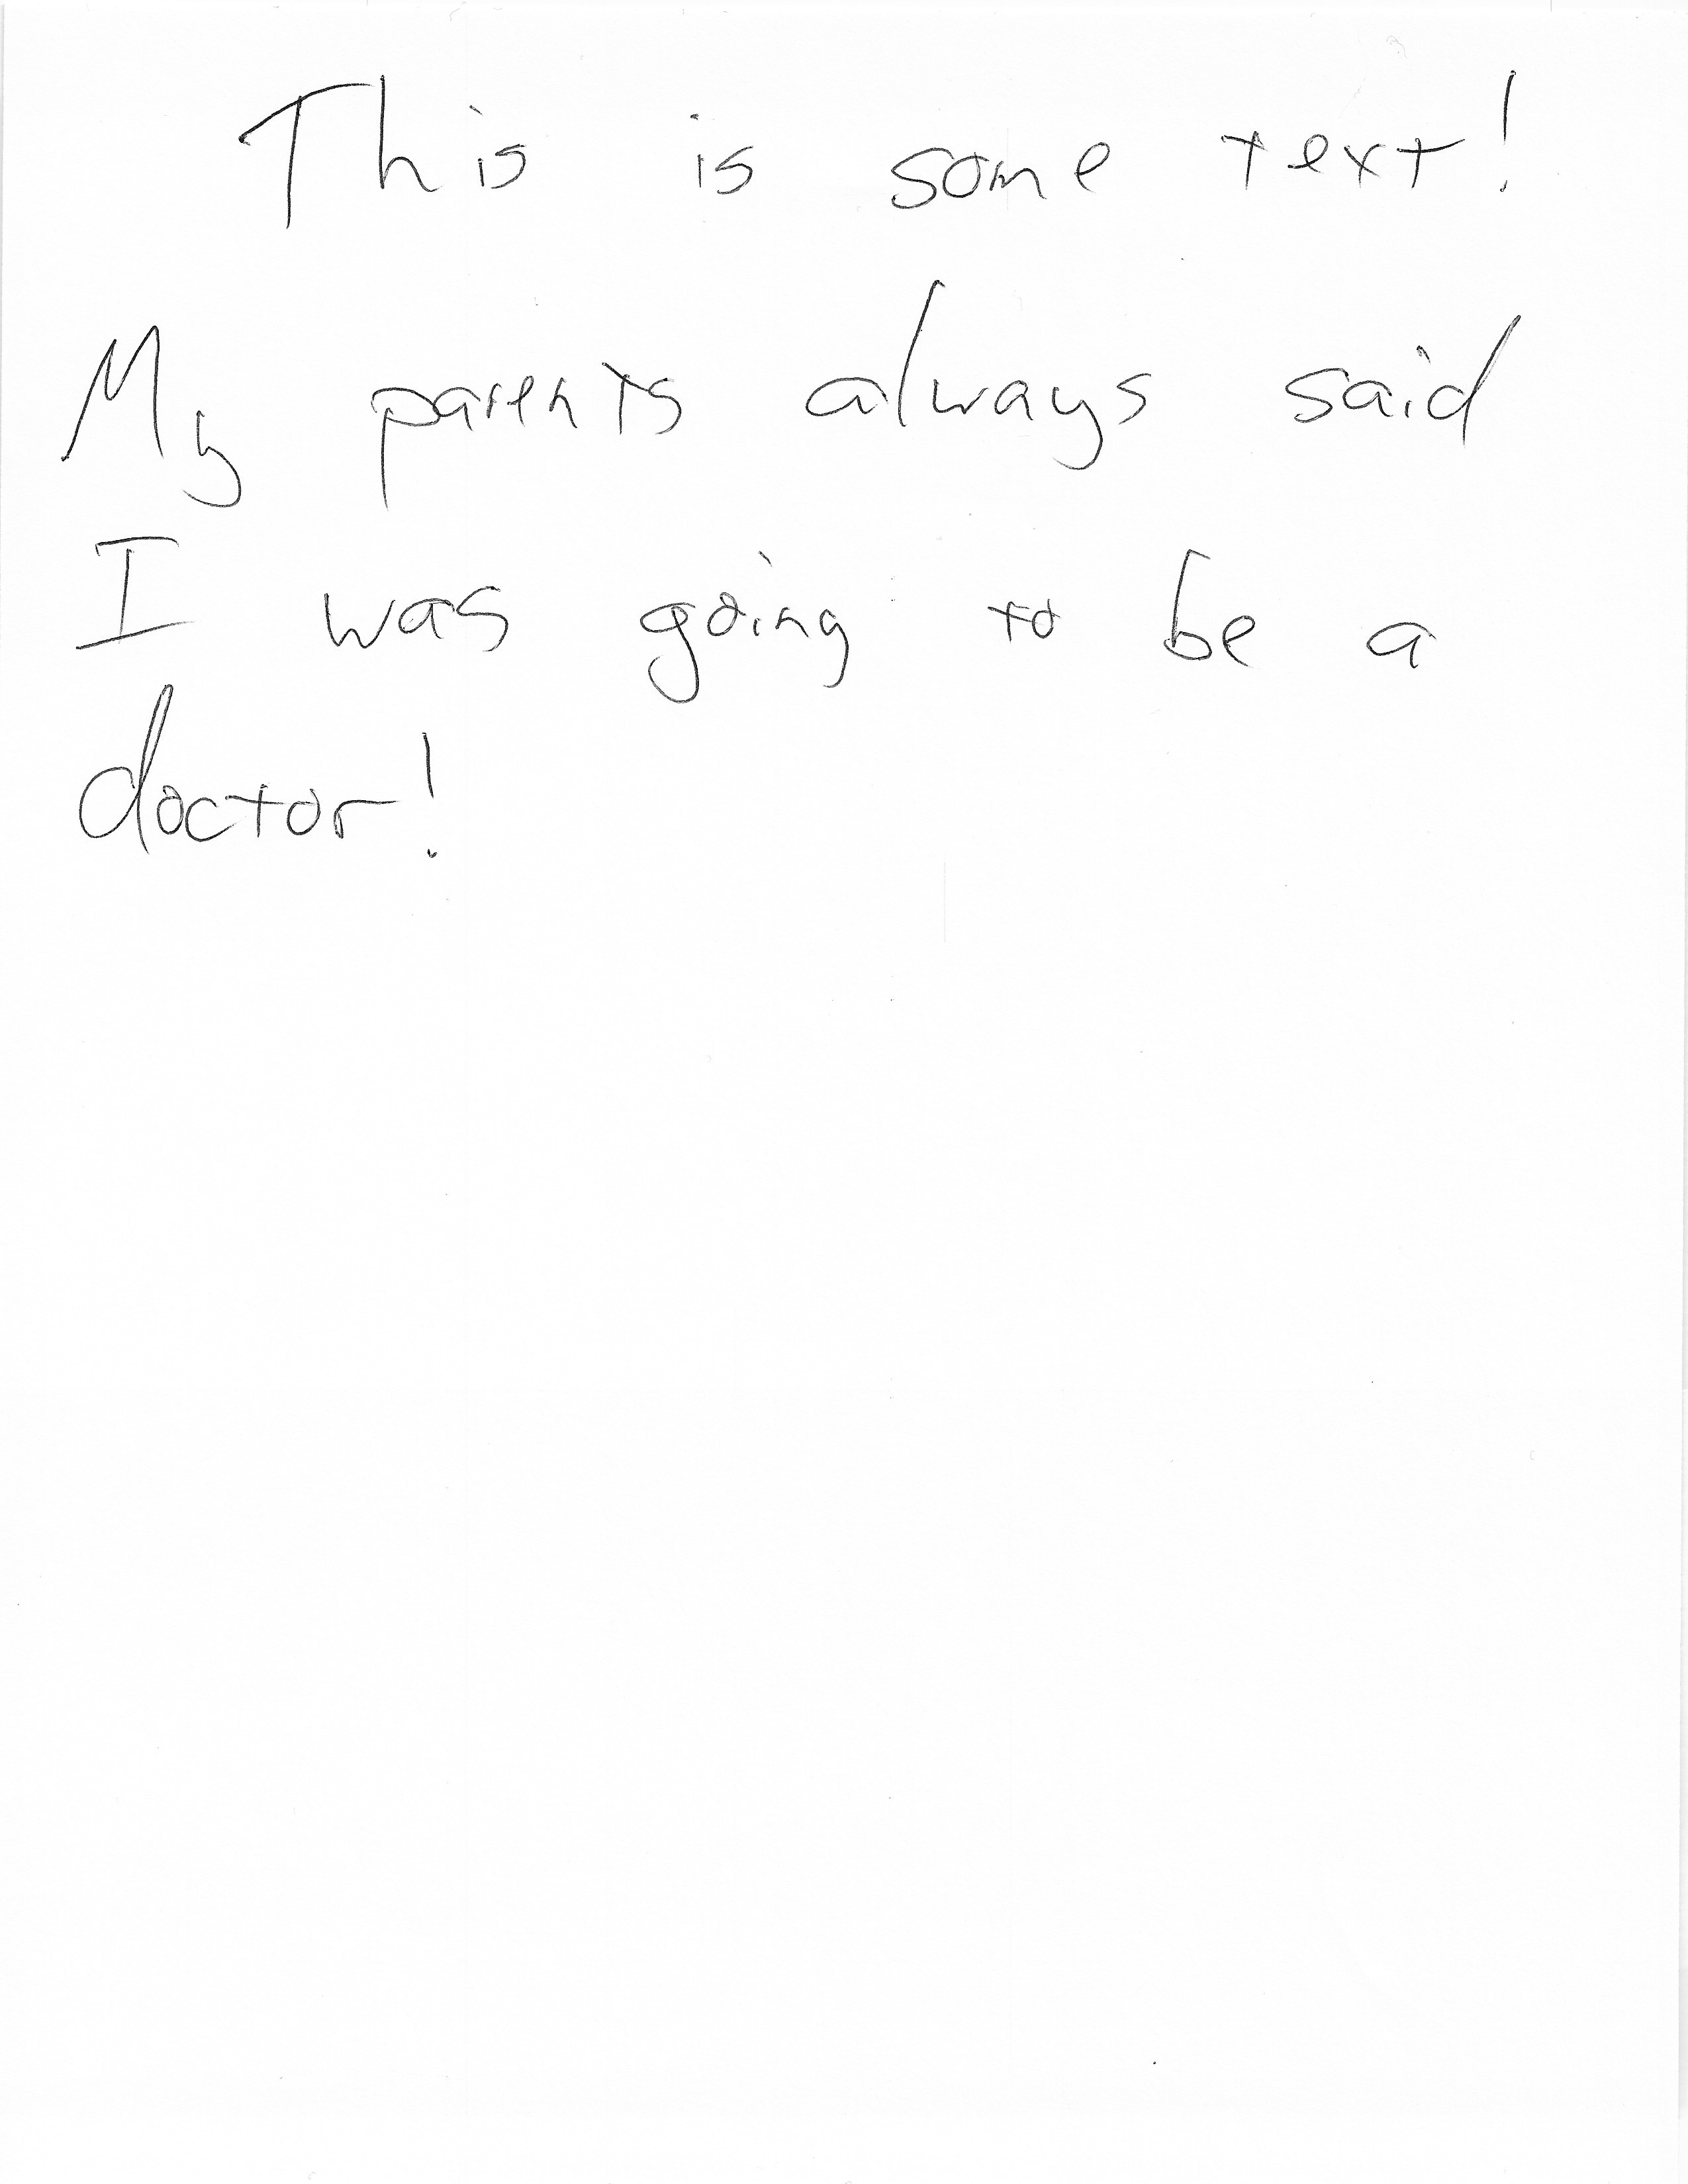 This is some text!
My parents always said
I was going to be a
doctor!